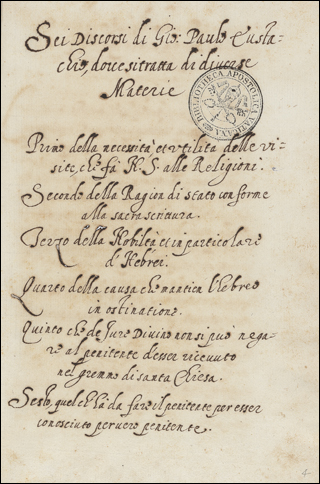 Sei Discorsi di Gio: Paulo Eusta-
chio, dove si tratta di diverse
Materie
BIBLIOTHECA APOSTOLICA VATICANA
Primo della necessità et utilità delle vi-
site, che fà N. S. alle Religioni.
Secondo della Ragion di stato conforme
alla sacra scrittura.
Terzo della Nobiltà et in particolare
d'Hebrei.
Quarto della causa che mantien l'hebreo
in ostinatione.
Quinto che de Jure Divino non si può nega-
re al penitente d'esser ricevuto
nel gremmo di santa chiesa.
Sesto, quel ch'hà da fare il penitente per esser
conosciuto per vero penitente.